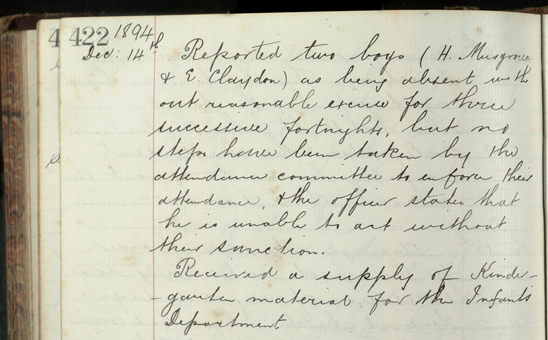 4 422 1894
Dec: 14th Reported two boys (H. Musgrove
& E. Claydon) as being absent with
out reasonable excuse for three
successive fortnights, but no
steps have been taken by the
attendance committee to enforce their
attendance, & the officer states that
he is unable to act without
their sanction.
Received a supply of Kinder-
-garten material for the Infants'
Department